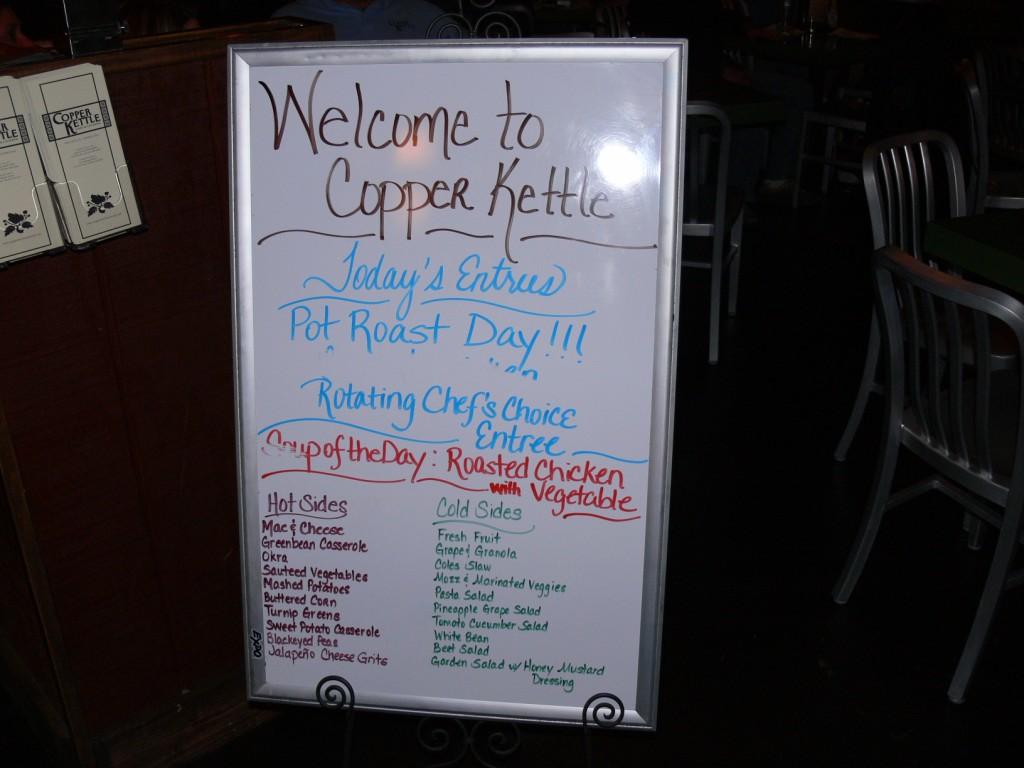 COPPER
KETTLE
Welcome to
Copper Kettle
Today's Entrees
Pot Roast Day!!!
Rotating Chef's Choice
Entree
Soup of the Day: Roasted Chicken
with Vegetable
Hot Sides
Mac & Cheese
Greenbean Casserole
Okra
Sauteed Vegetables
Mashed Potatoes
Buttered Corn
Turnip Greens
Sweet Potato Casserole
Blackeyed Peas
Jalapeño Cheese Grits
Cold Sides
Fresh Fruit
Grape & Granola
Coles Slaw
Mozz & Marinated Veggies
Pasta Salad
Pineapple Grape Salad
Tomato Cucumber Salad
White Bean
Beet Salad
Garden Salad w/ Honey Mustard
Dressing
EXPO